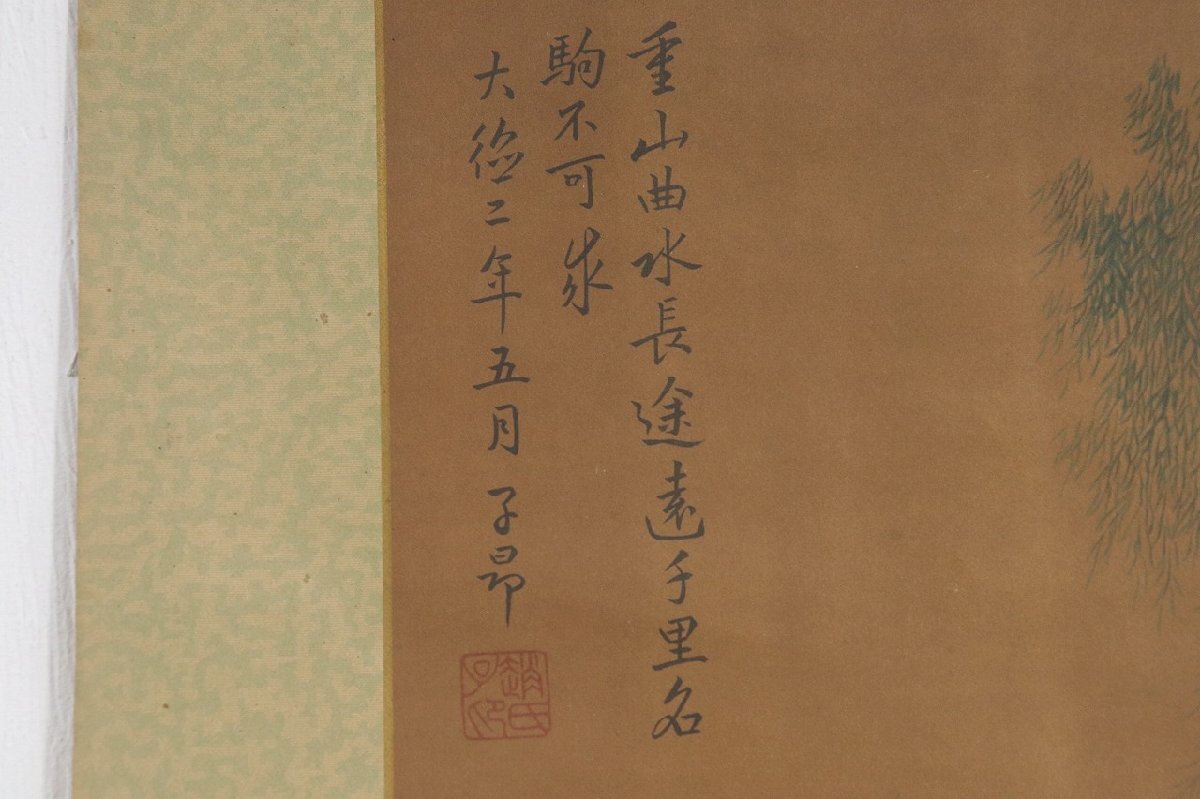 重山曲水長途遠千里名
駒不可求
大德二年五月 子昂
趙氏子昂